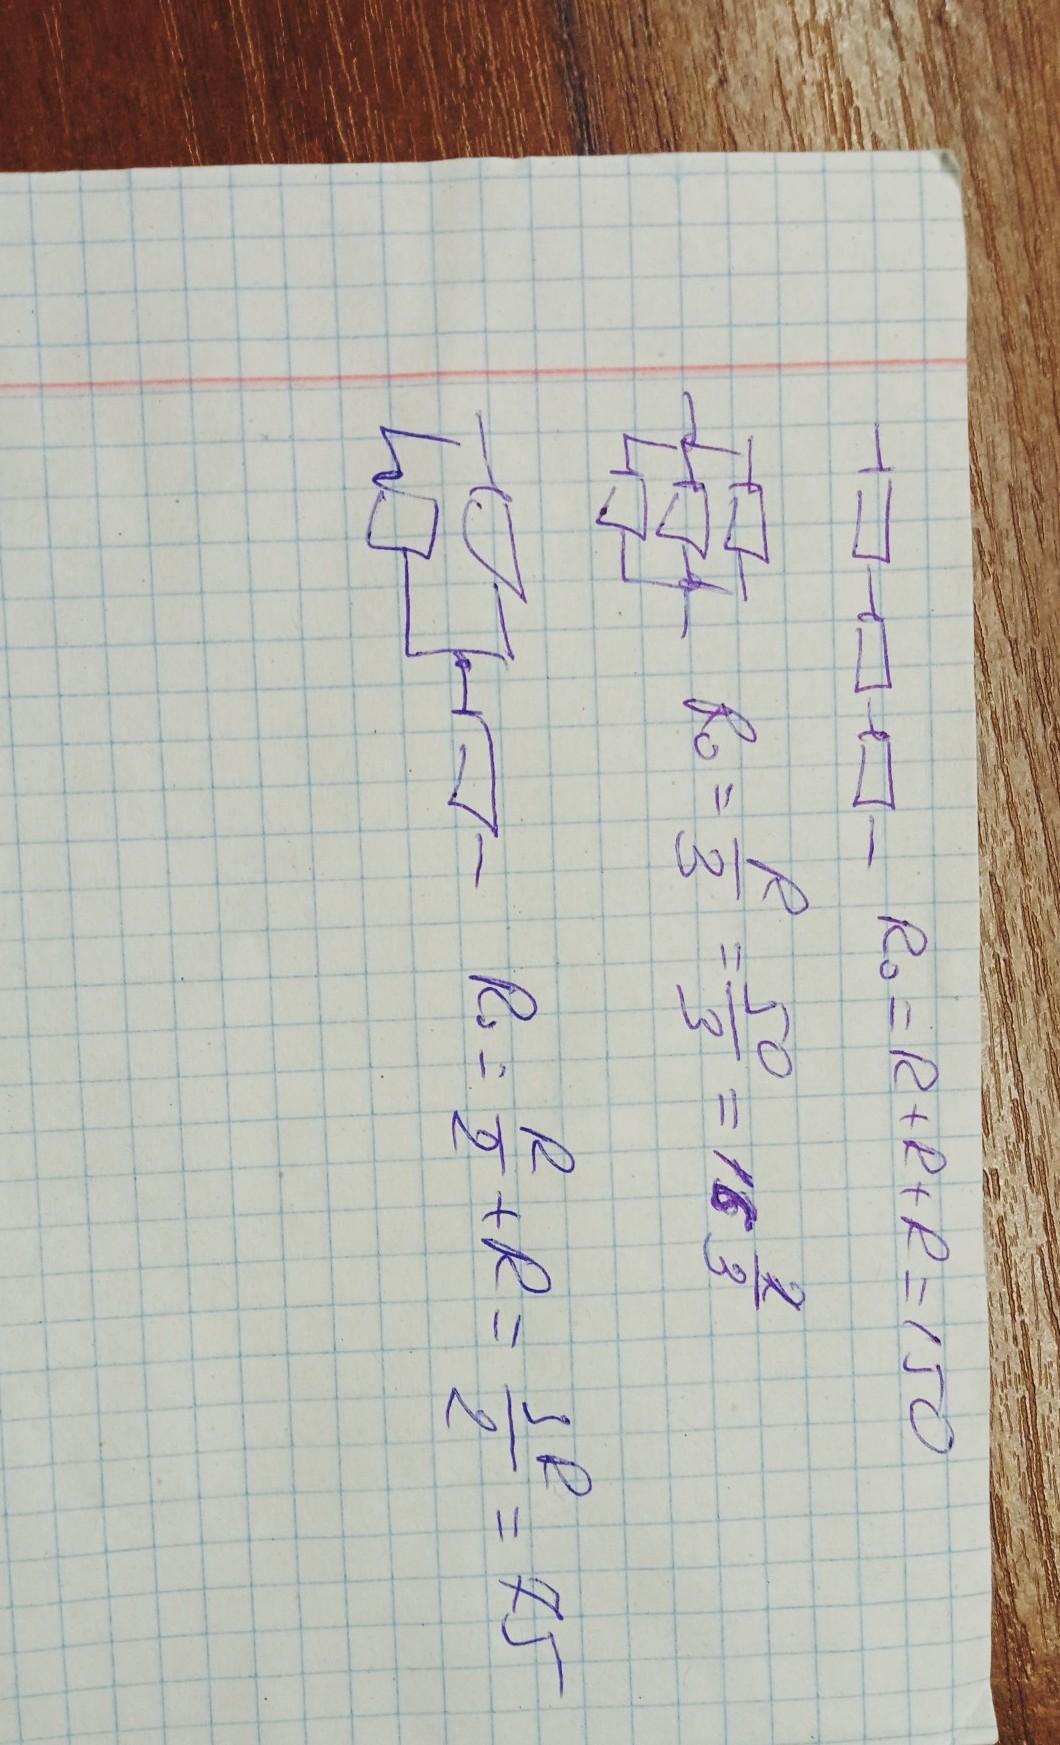 R₀ = R + R + R = 150
R₀ = R/3 = 50/3 = 16 2/3
R₀ = R/2 + R = 3R/2 = 75